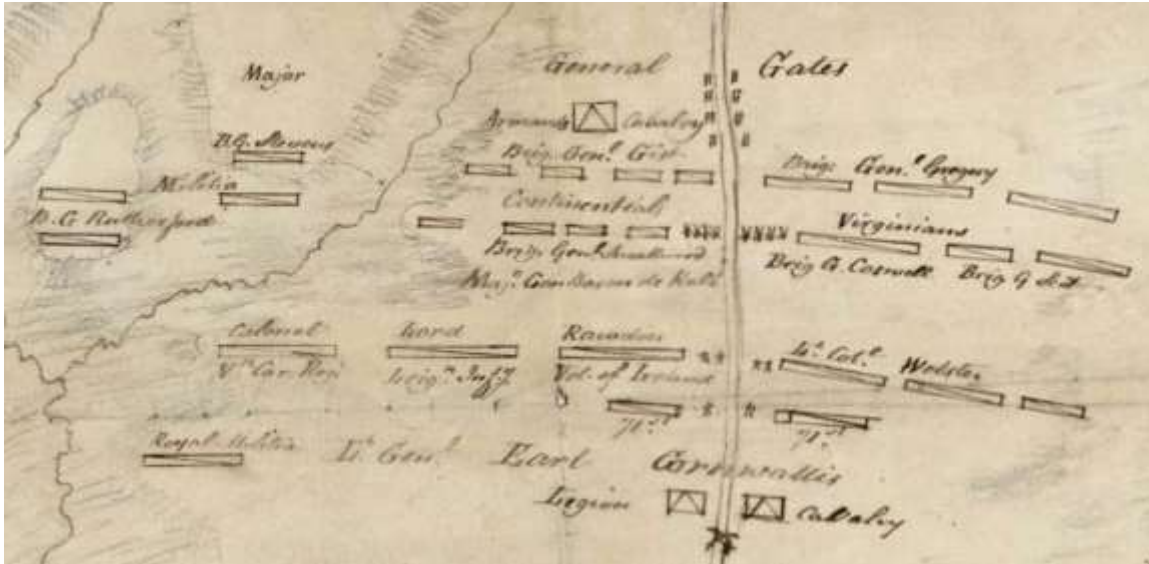 General Gates
Major
Armands Cavalry
B.G. Stevens
Brig. Genl. Gist
Brig. Genl. Gregory
Militia
B.G. Rutherford
Continentals
Virginians
Brig. Genl. Smallwood
Brig G. Caswell
Brig G
Majr. Gen Baron de Kalb
Colonel Lord Rawdon
Lt. Coll. Webster
Legn. Infy.
Vol. of Ireland
71st
71st
Royal Militia
Lt. Genl. Earl Cornwallis
Legion Cavalry